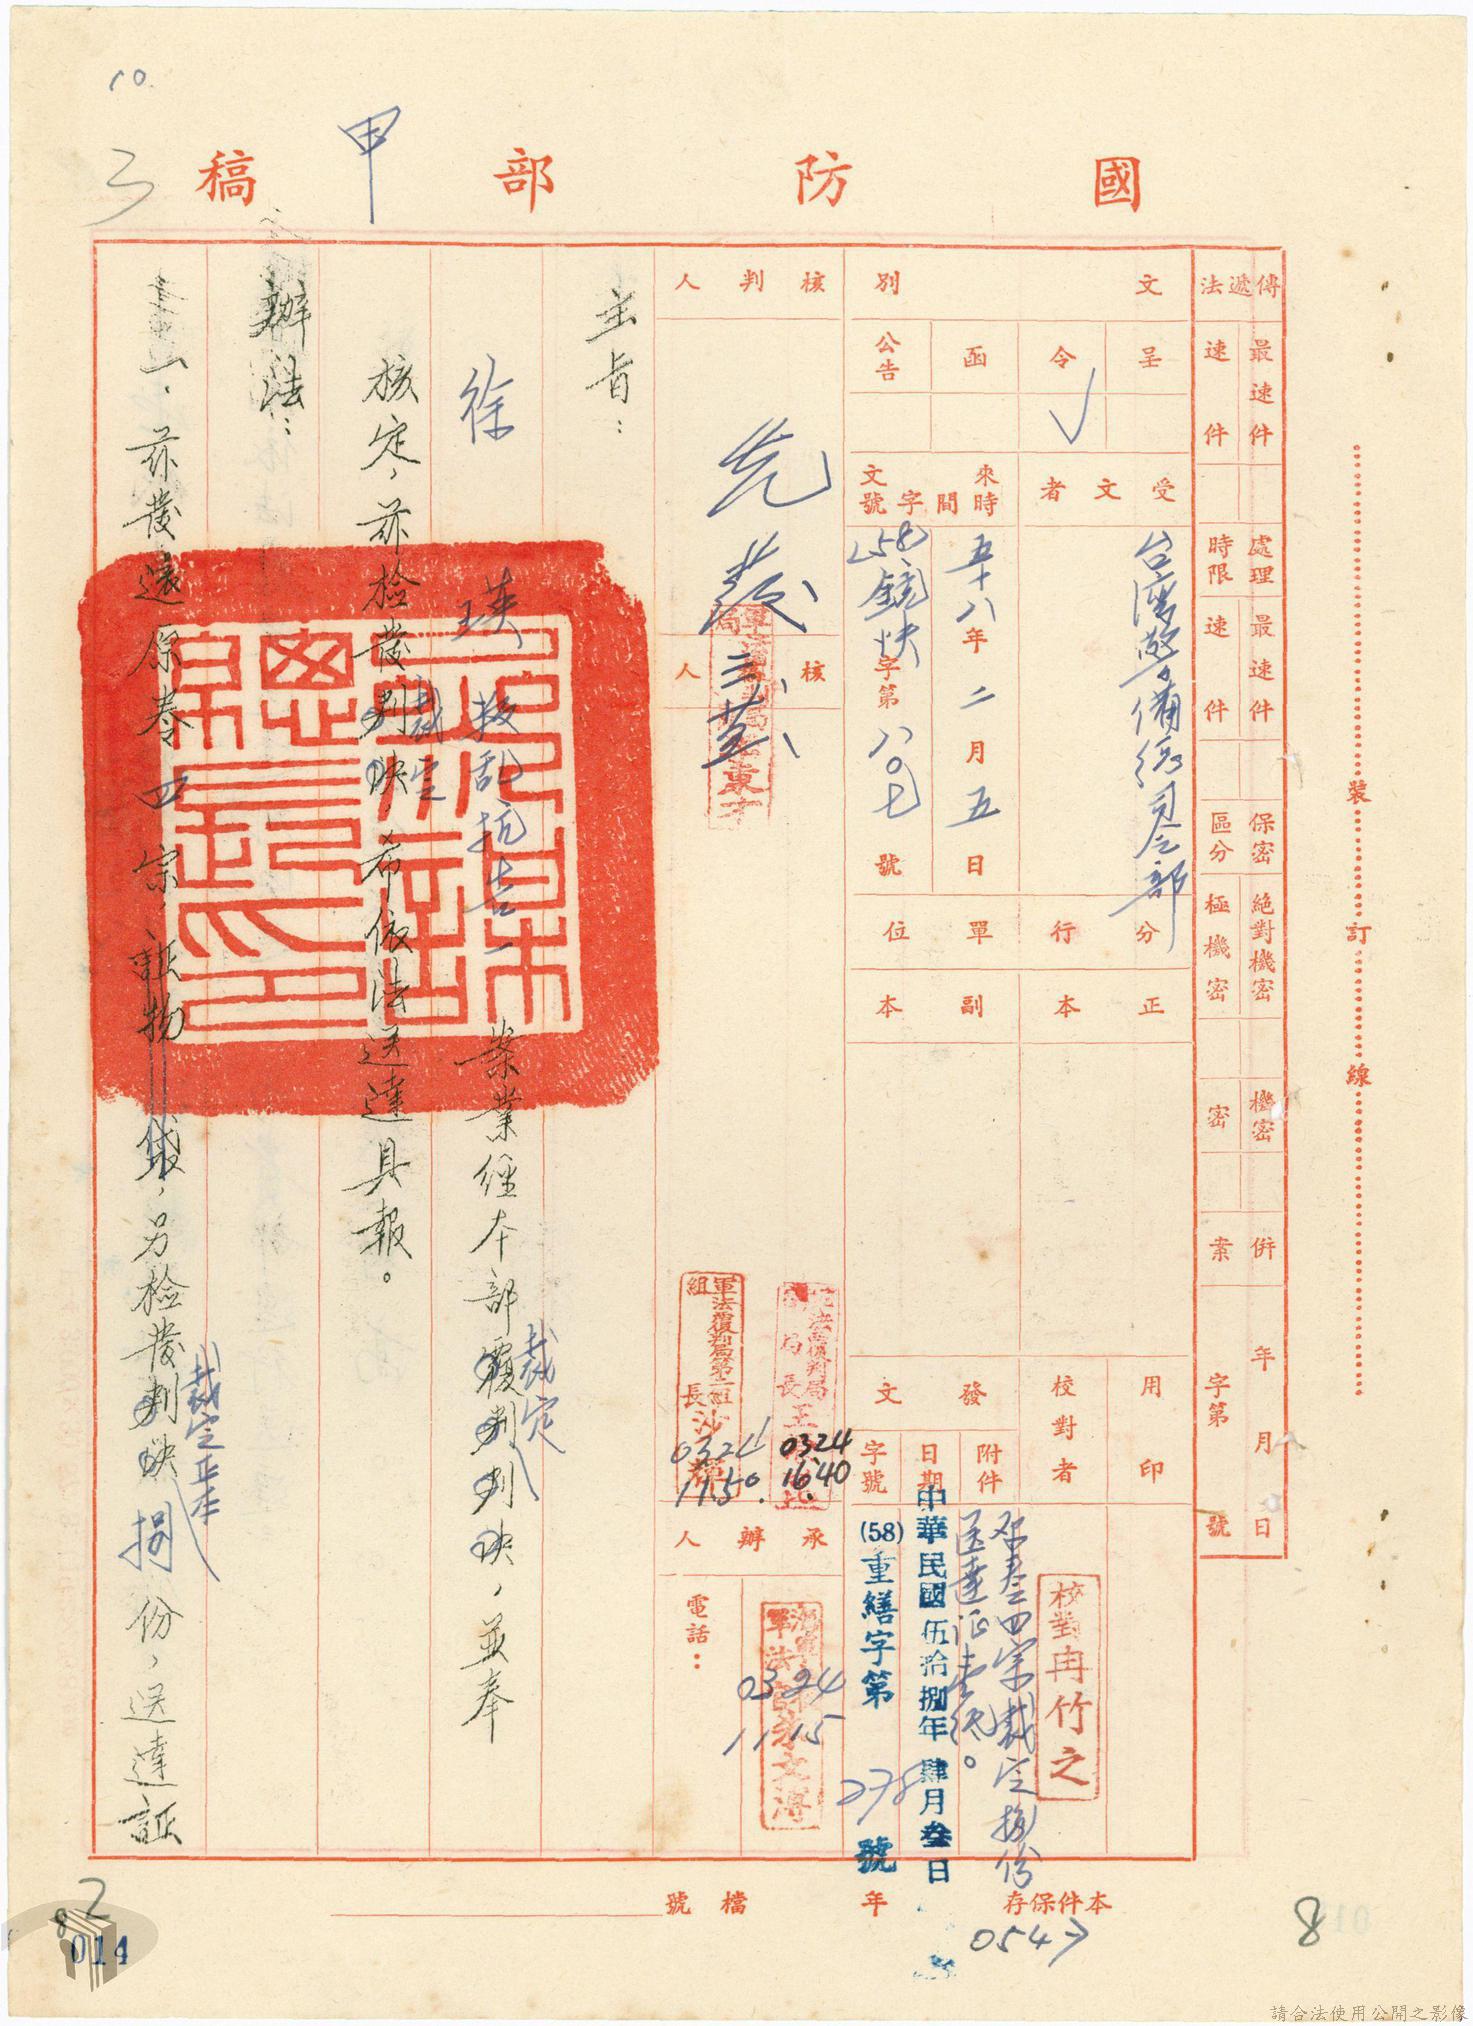 10.
甲
國防部稿
裝訂線
傳遞法
最速件
速件
處理時限
最速件
速件
保密區分
絕對機密
極機密
機密
密
併案
年月日
字第號
文別
呈
令 ✓
函
公告
受文者
台灣警備總司令部
來文
時間
五十八年二月五日
字號
(58)鏡快字第八〇七號
分行單位
正本
副本
用印
校對者
校對冉竹之
發文
附件
原卷四宗裁定捌份
送達證壹紙。
日期
中華民國伍拾捌年肆月叁日
字號
(58)重繕字第278號
核判人
核人
軍法覆判局局長
0324
16.40
軍法覆判局第二組組長沙
0324
11.50.
承辦人
0324
11 15
電話：
主旨：
徐瑛叛亂抗告一案業經本部覆判判決裁定，並奉
核定，茲檢發判決裁定，希依法送達具報。
辦法：
一、茲發還原卷四宗，証物袋，另檢發判決裁定正本捌份，送達証
本件保存年
檔號
0547
8
2
8
014
請合法使用公開之影像